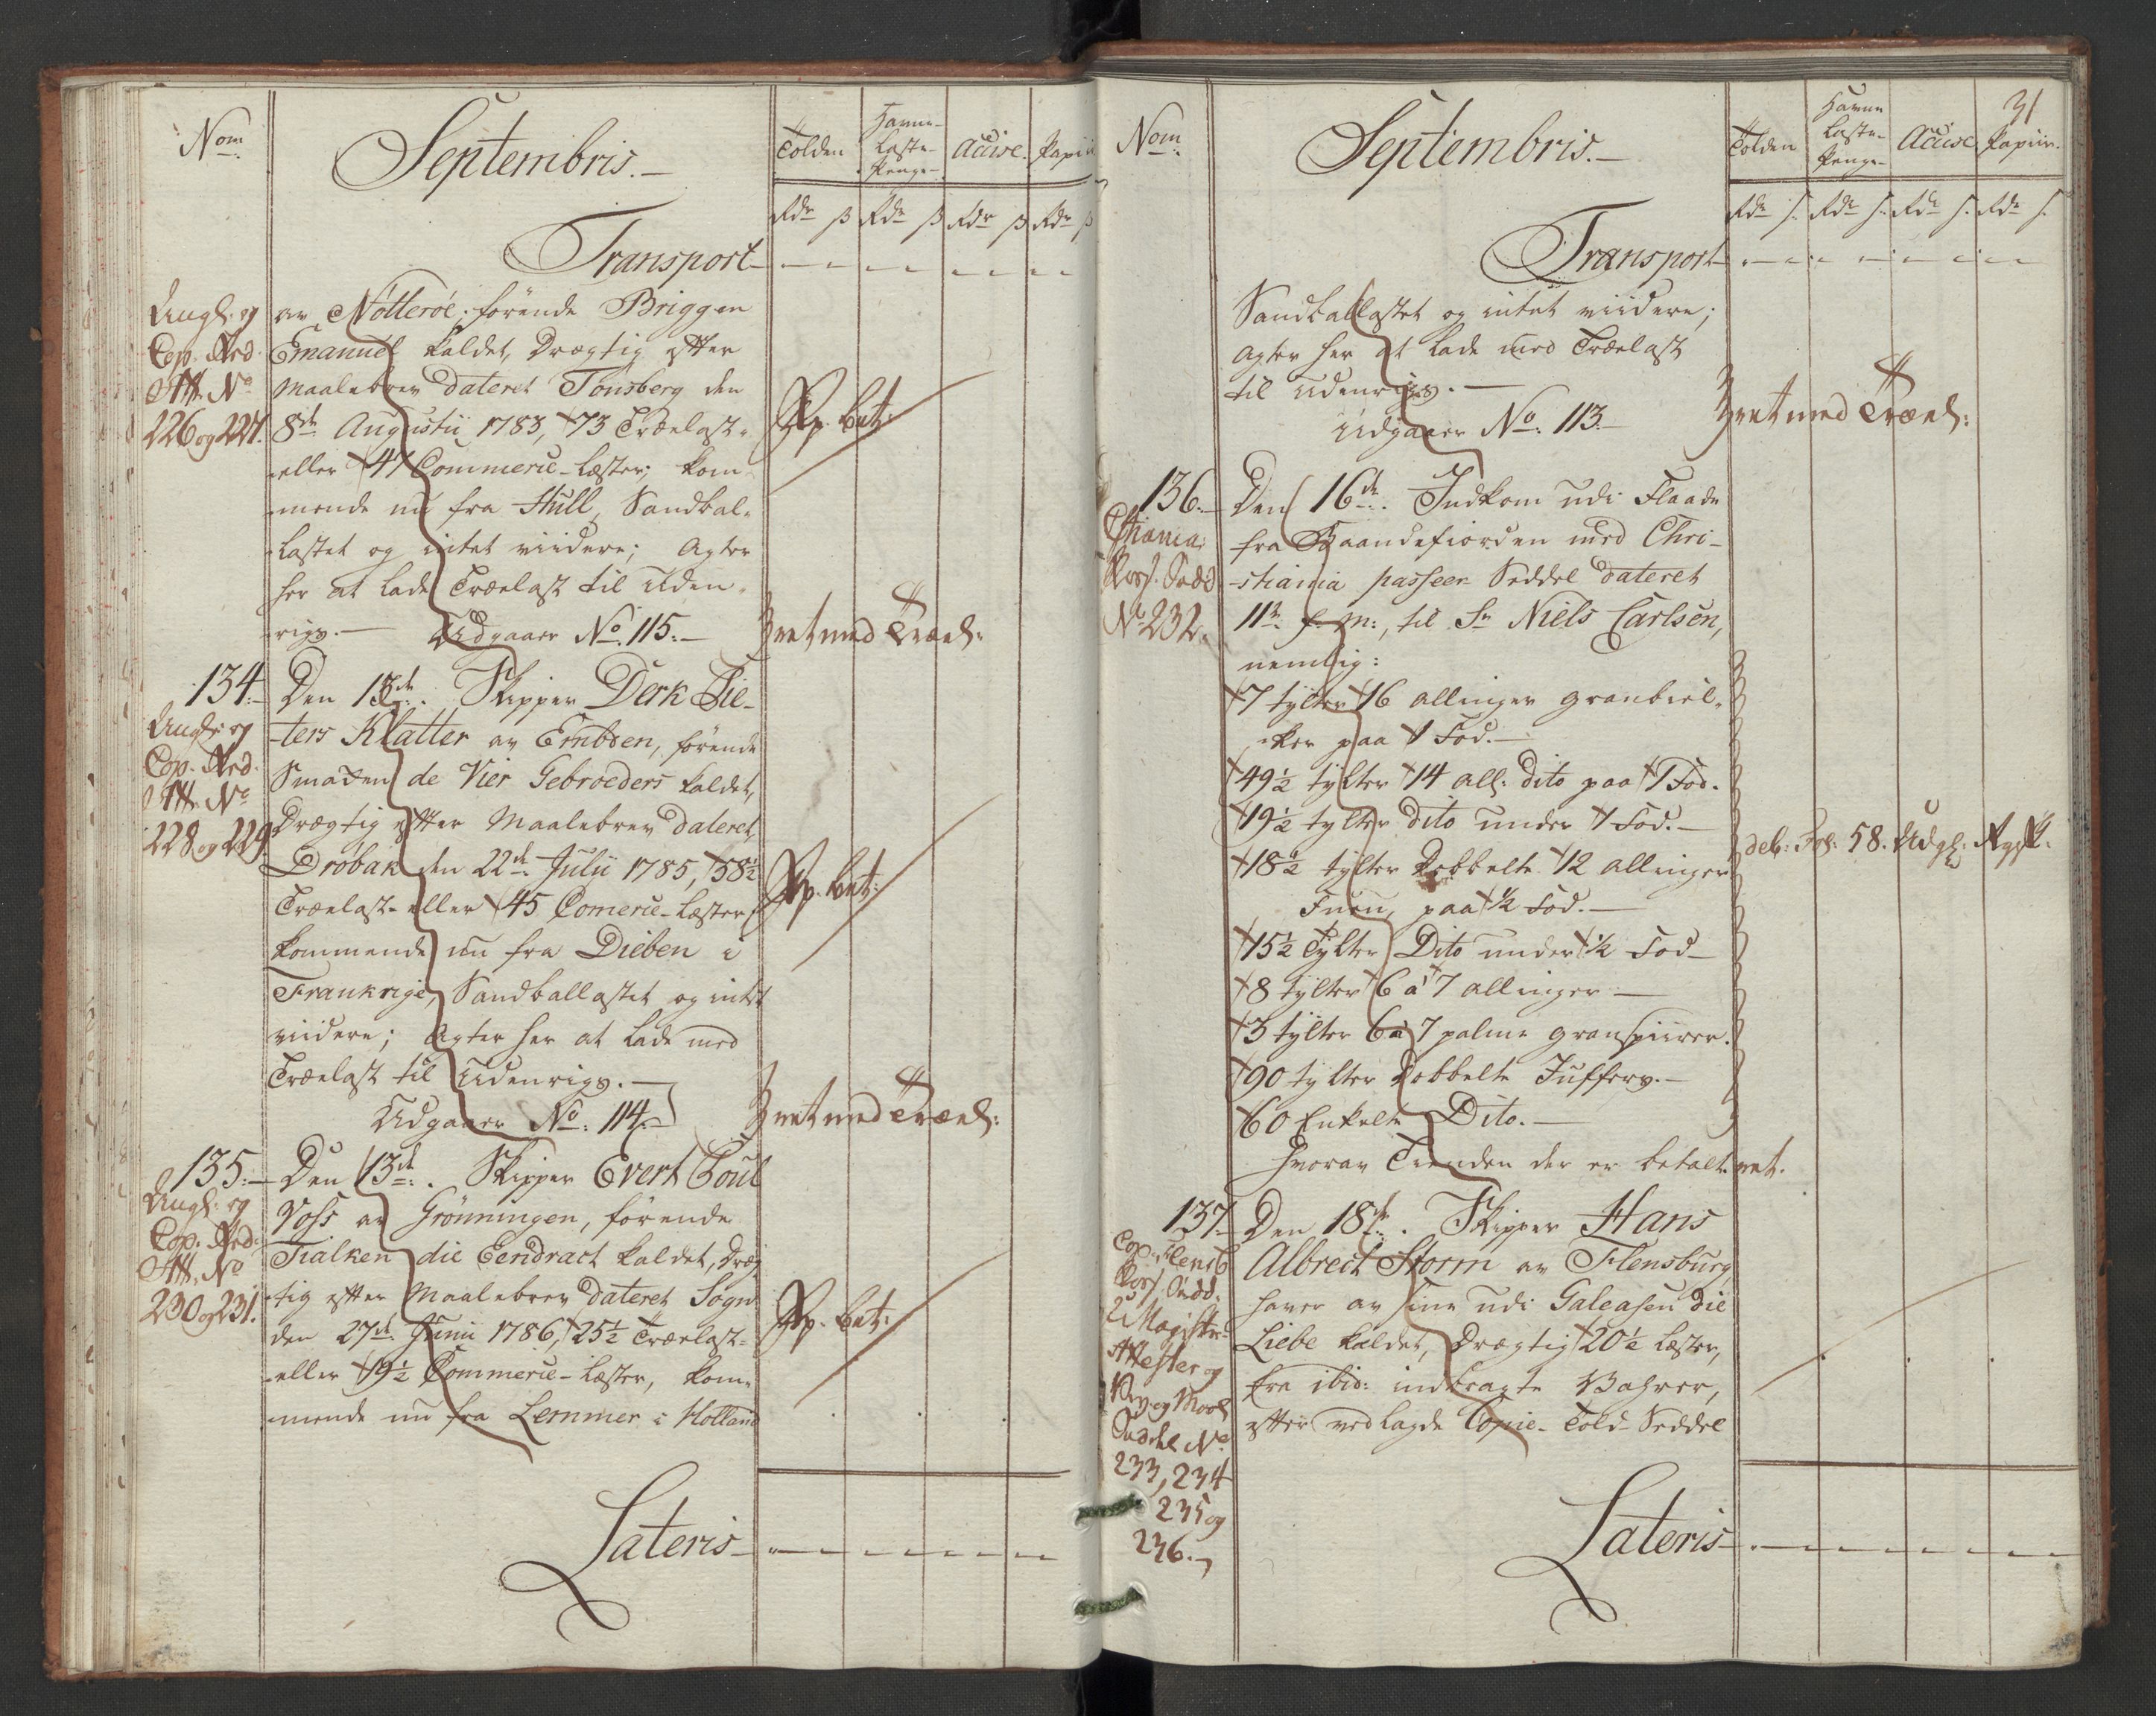 Nom
Septembris.
Tolden
Havne-
Laste-
Penge
Accise.
Papiir
Rdr ß Rdr ß Rdr ß Rdr ß
Transport
Angl: og
Cop. Ard
Att. No
226 og 227.
av Nötteröe, förende Briggen
Emanuel kaldet, drægtig efter
Maalebrev dateret Tönsberg den
8de Augustii 1783, 73 Trælast-
eller 47 Commerce-Læster; kom-
mende nu fra Hull, Sandbal-
lastet og intet viidere; Agter
her at lade Trælast til Uden-
rigs.- Udgaaer No 115.-
Pp. bet:
Bret med Træel:
134.-
Angl: og
Cop. Ard.
Att. No
228 og 229
Den 13de. Skipper Derk Pie-
ters Klatter av Embden, förende
Smakken de Vier Gebroeders kaldet,
Drægtig efter Maalebrev dateret
Dröbak den 22de Julii 1785, 58½
Trælast- eller 45 Comerce-Læster
kommende nu fra Dieben i
Frankrige, Sandballastet og intet
viidere; Agter her at lade med
Trælast til Udenrigs.-
Udgaaer No. 114.-
Pp. bet:
Bret med Træel:
135.-
Angl: og
Cop. Ard:
Att. No
230 og 231.
Den 13de. Skipper Evert Poul
Voss av Grönningen, förende
Tialken die Eendract kaldet, dræg-
tig efter Maalebrev dateret Sogn
den 27de Junii 1786, 25½ Trælast-
eller 19½ Commerce-Læster, kom-
mende nu fra Lemmer i Holland
Pp. bet:
Lateris
31
Nom
Septembris.-
Tolden
Havne
Laste-
Penge-
Accise
Papiir.
Rdr s. Rdr s. Rdr s. Rdr s.
Transport
Sandballastet og intet viidere;
Agter her at lade med Trælast
til Udenrigs.-
Udgaaer No. 113.-
Bret med Træel:
136.-
Chania:
Pass. Sedd
No 232.
Den 16de. Indkom udi Flaade
fra Sandefiorden med Chri-
stiania passeer Seddel dateret
11te f. M:, til Sr Niels Carlsen,
nemlig:
7 tylter 16 allinger Granbiel-
ker paa 1 Fod.-
49½ tylter 14 all: dito paa 1 Fod.
19½ tylter dito under 1 Fod.-
18½ tylter Dobbelte 12 allinger
Furu, paa ½ Fod.-
15½ Tylter Dito under ½ Fod-
8 tylter 6 a 7 allinger-
3 tylter 6 a 7 palme Granspiirer.
90 tylter Dobbelte Juffers.-
60 Enkelte Dito.-
Hvorav Tienden der er betalt.
deb: Fol: 58. Udg:
ret.
137.
Cop: Flensb
Pass. Sedd.
2 Magistr:
Attester og
og
Seddel No
233, 234
235 og
236.-
Den 18de. Skipper Hans
Albrect Storm av Flensburg,
haver av sine udi Galeasen die
Liebe kaldet, Drægtig 20½ Læster,
fra ibid: indbragte Vahrer,
efter vedlagde Copie-Told-Seddel
Lateris